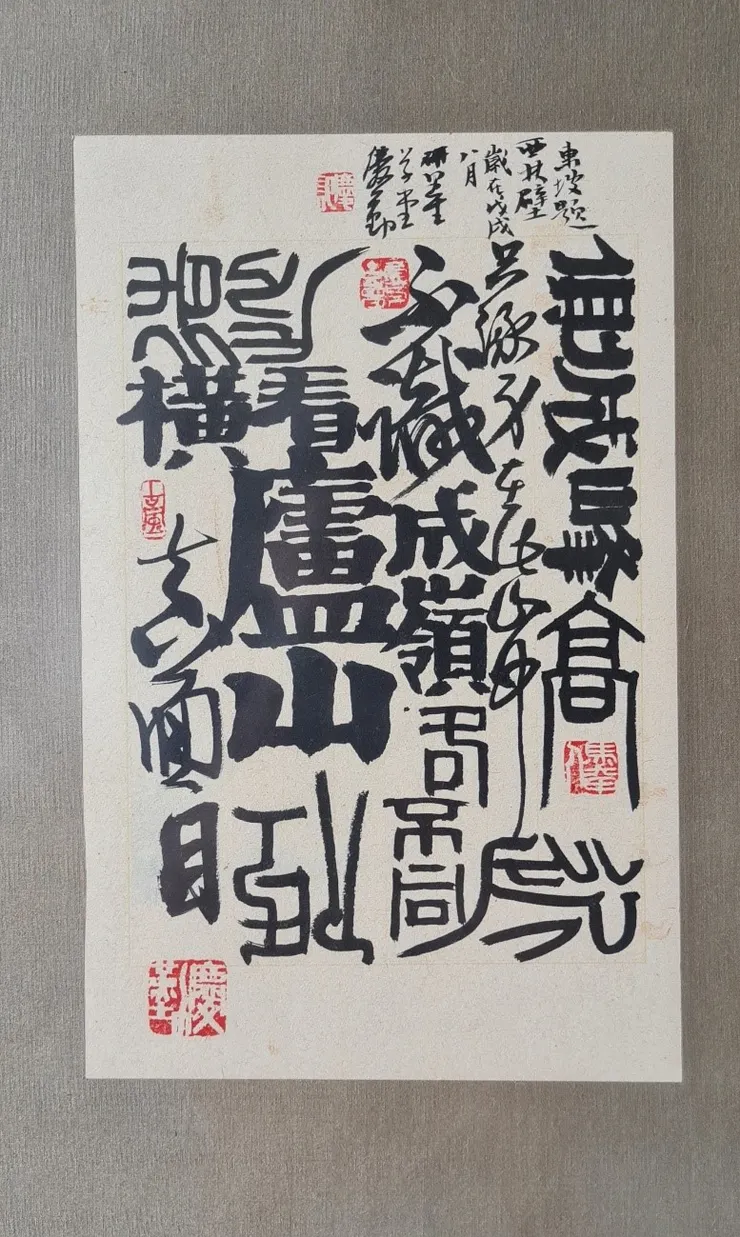 東坡題
西林壁
歲在戊戌
八月
慶勤
側成峰高
只緣身在此山中
不識成嶺
同
看廬山低
橫真面目